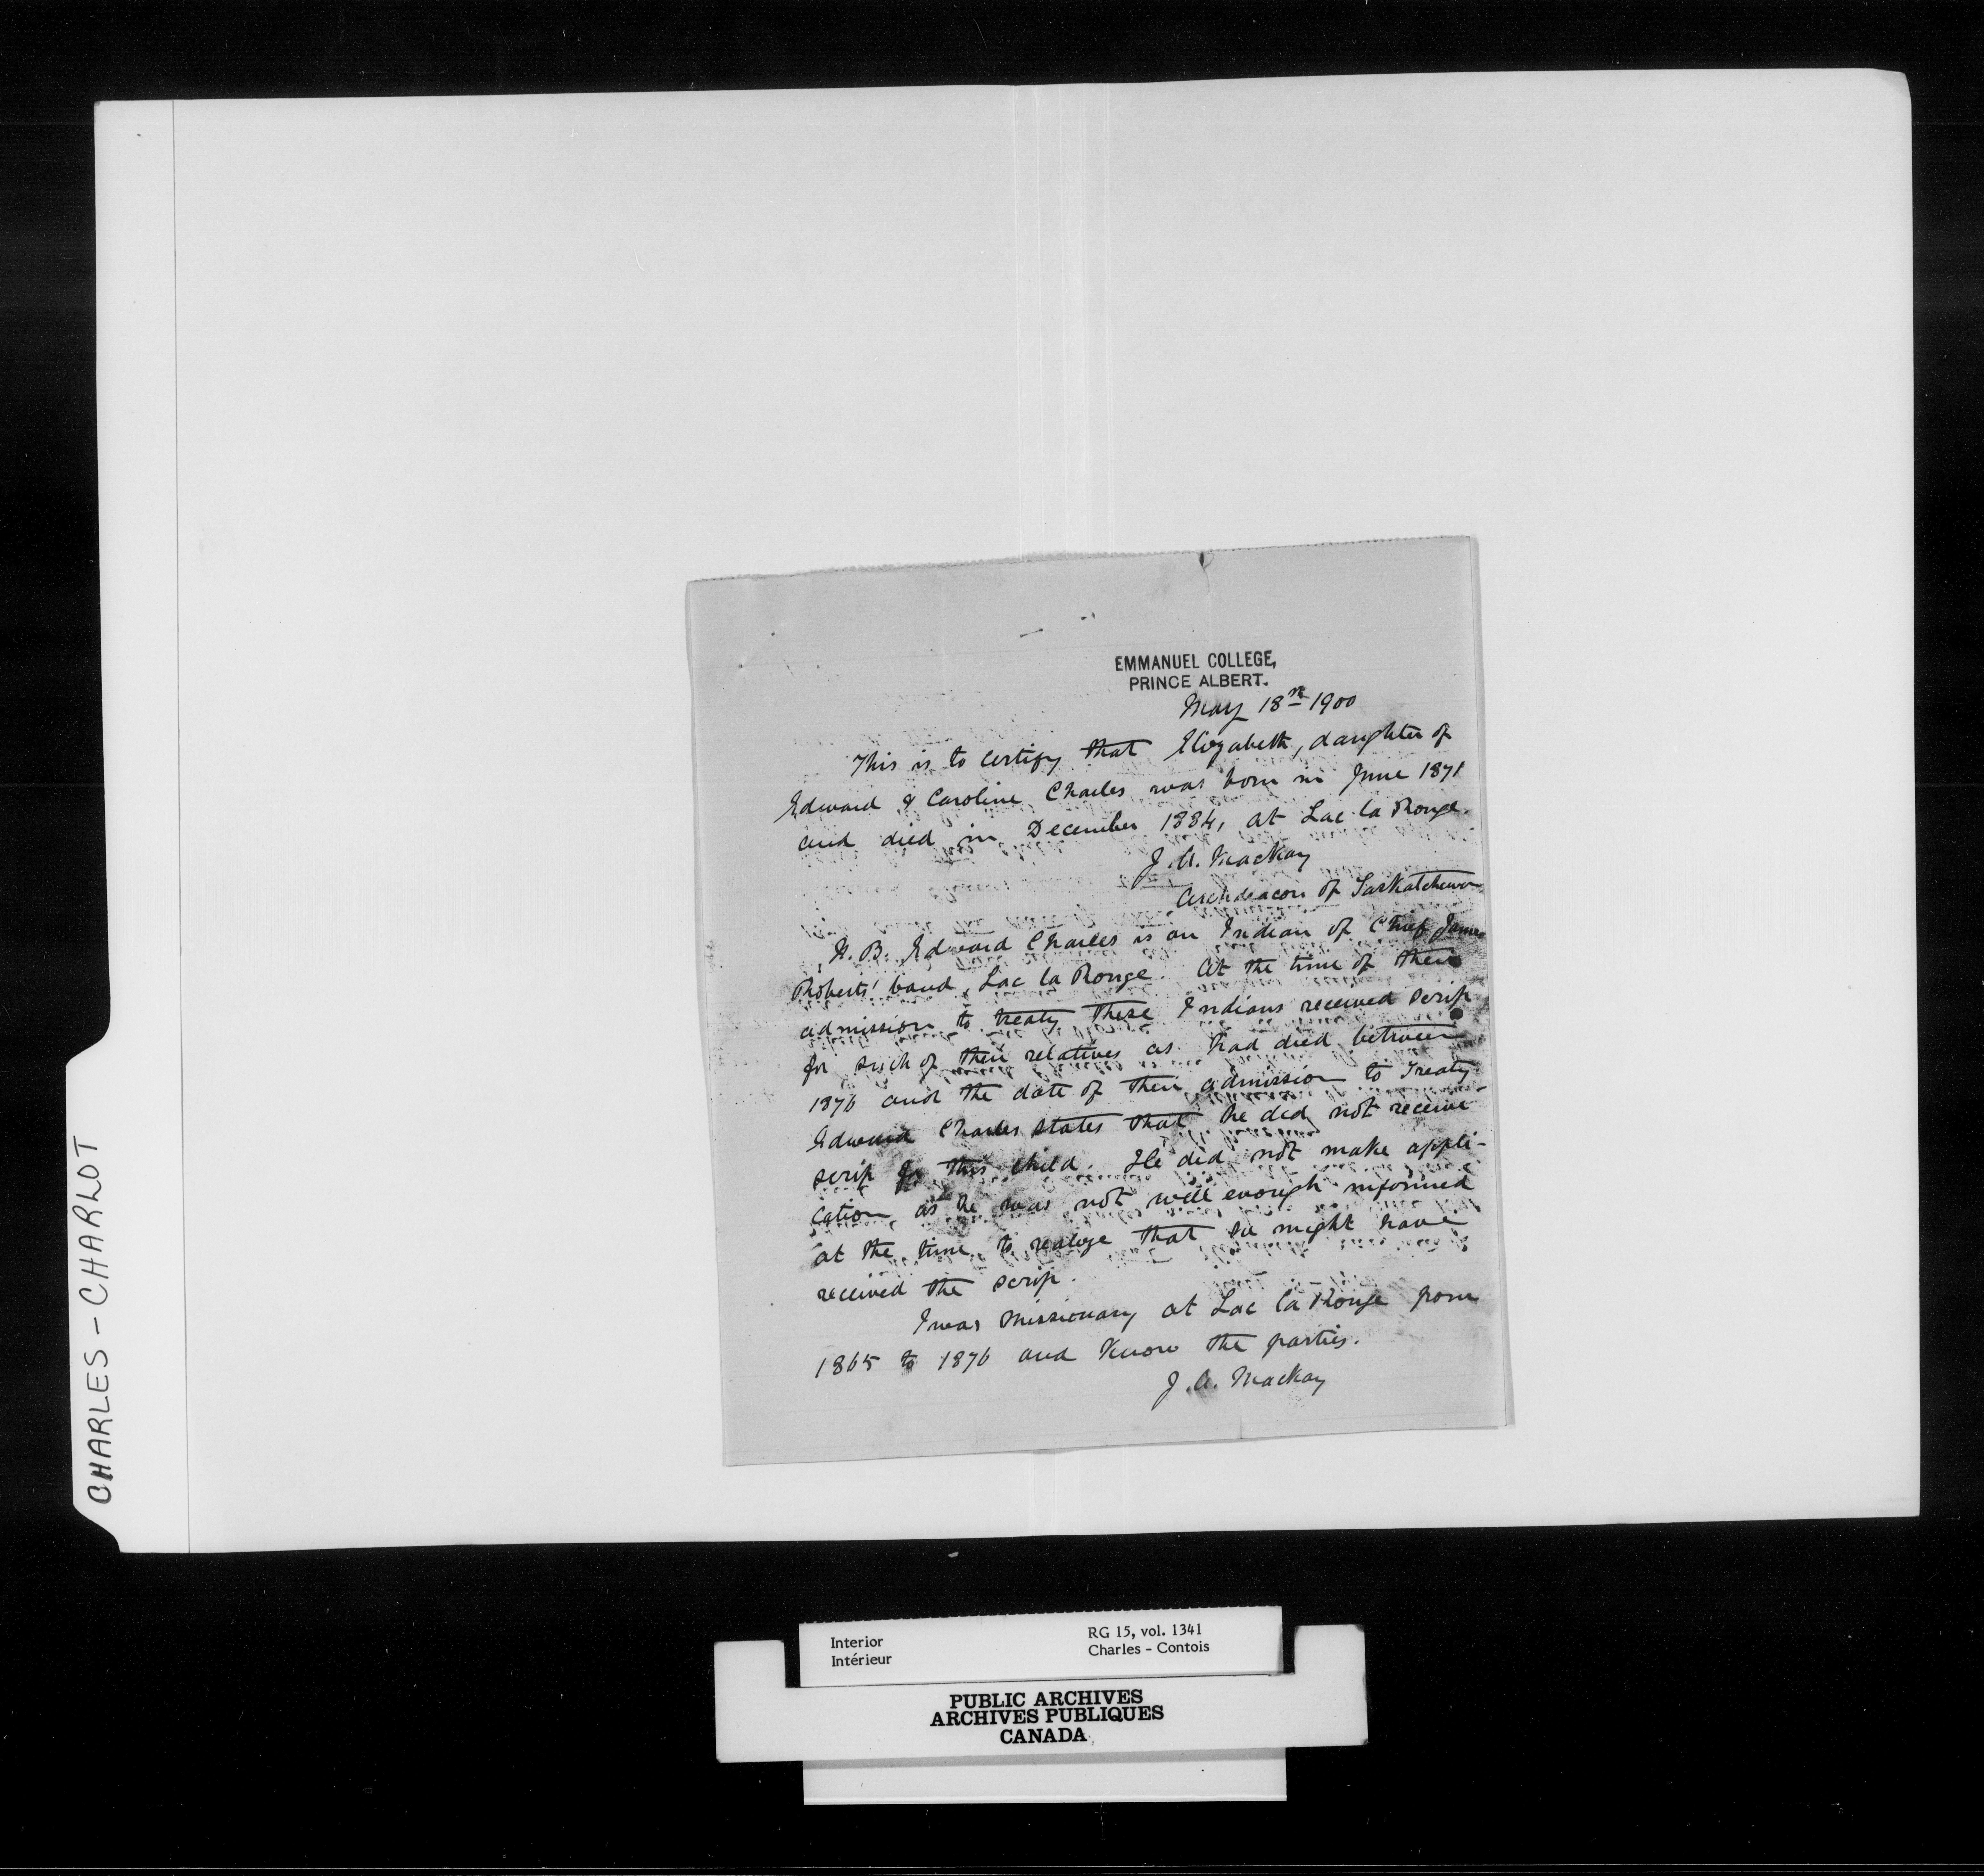 EMMANUEL COLLEGE,
PRINCE ALBERT.
May 18th 1900
This is to certify that Elizabeth, daughter of
Edward & Caroline Charles was born in June 1871
and died in December 1884, at Lac la Ronge.
J. A. Mackay
Archdeacon of Saskatchewan
N.B. Edward Charles is an Indian of Chief James
Roberts' band, Lac la Ronge. At the time of their
admission to treaty these Indians received scrip
for such of their relatives as had died between
1876 and the date of their admission to Treaty
Edward Charles states that he did not receive
scrip for this child. He did not make appli-
cation as he was not well enough informed
at the time to realize that he might have
received the scrip.
I was missionary at Lac la Ronge from
1865 to 1876 and know the parties.
J. A. Mackay
CHARLES - CHARLOT
Interior
Intérieur
RG 15, vol. 1341
Charles - Contois
PUBLIC ARCHIVES
ARCHIVES PUBLIQUES
CANADA